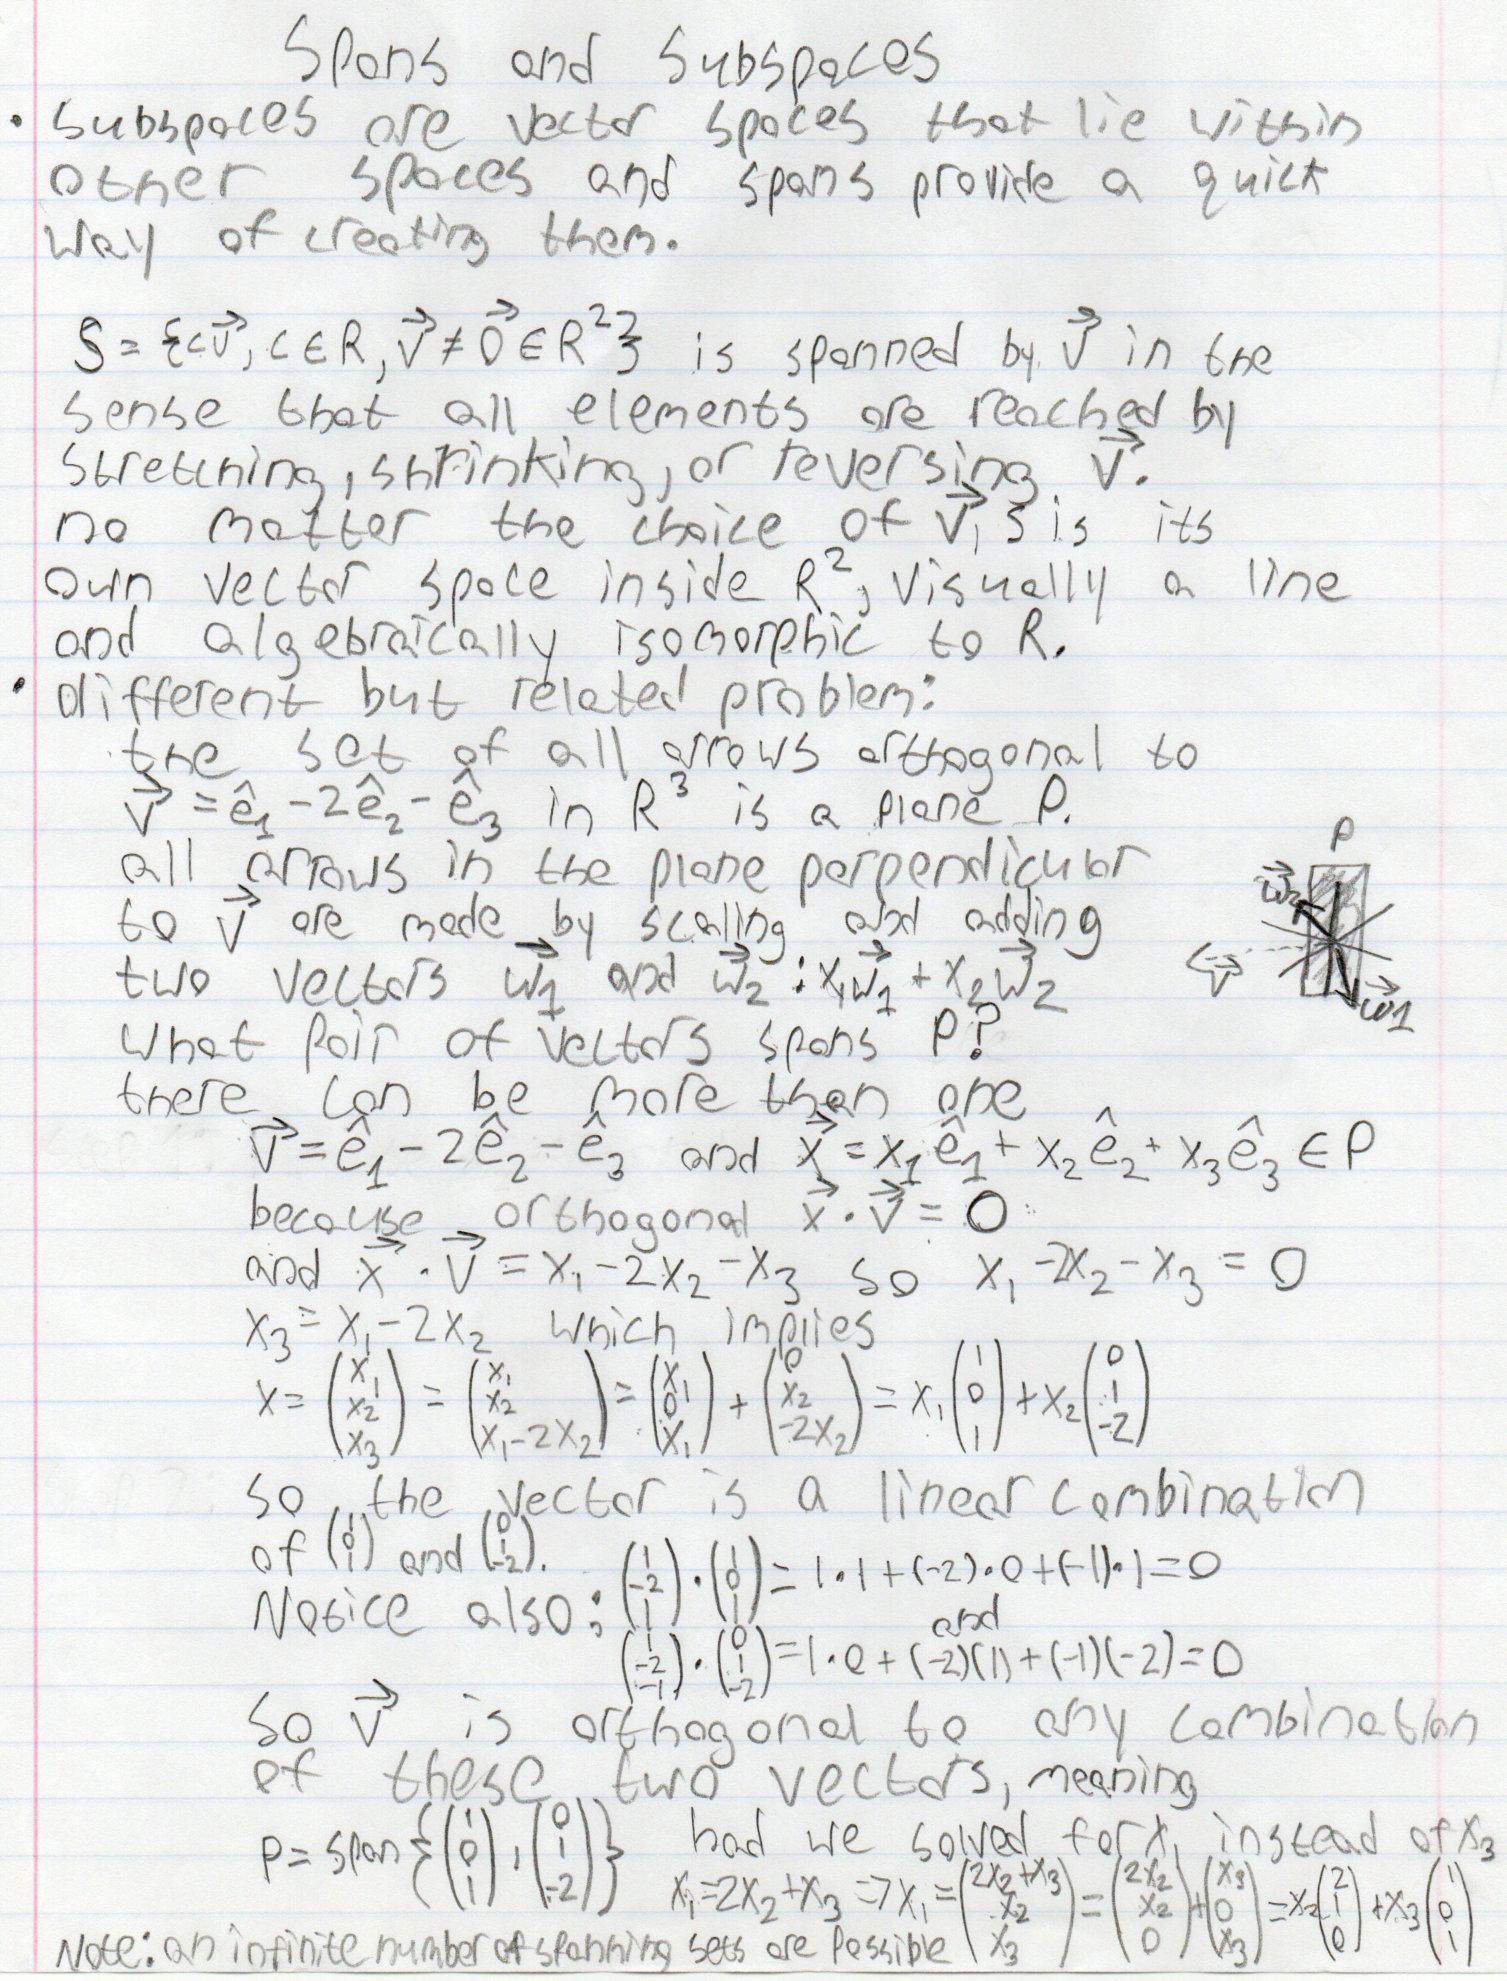 Spans and Subspaces
• Subspaces are vector spaces that lie within
other spaces and spans provide a quick
way of creating them.
S = {cv⃗, c ∈ R, v⃗ ≠ 0⃗ ∈ R²} is spanned by v⃗ in the
sense that all elements are reached by
stretching, shrinking, or reversing v⃗.
no matter the choice of v⃗, S is its
own vector space inside R², visually a line
and algebraically isomorphic to R.
• different but related problem:
the set of all arrows orthogonal to
v⃗ = ê₁ - 2ê₂ - ê₃ in R³ is a plane P.
all arrows in the plane perpendicular
to v⃗ are made by scaling and adding
two vectors w⃗₁ and w⃗₂ : x₁w⃗₁ + x₂w⃗₂
P
w⃗₂
v⃗
w⃗1
what pair of vectors spans P?
there can be more than one
v⃗ = ê₁ - 2ê₂ - ê₃ and x⃗ = x₁ê₁ + x₂ê₂ + x₃ê₃ ∈ P
because orthogonal x⃗ · v⃗ = 0
and x⃗ · v⃗ = x₁ - 2x₂ - x₃ so x₁ - 2x₂ - x₃ = 0
x₃ = x₁ - 2x₂ which implies
x = (x₁ x₂ x₃) = (x₁ x₂ x₁-2x₂) = (x₁ 0 x₁) + (0 x₂ -2x₂) = x₁(1 0 1) + x₂(0 1 -2)
so the vector is a linear combination
of (1 0 1) and (0 1 -2).
Notice also: (1 -2 1) · (1 0 1) = 1·1 + (-2)·0 + (-1)·1 = 0
and
(1 -2 -1) · (0 1 -2) = 1·0 + (-2)(1) + (-1)(-2) = 0
so v⃗ is orthogonal to any combination
of these two vectors, meaning
P = span{(1 0 1), (0 1 -2)} had we solved for x₁ instead of x₃
x₁ = 2x₂ + x₃ => x₁ = (2x₂+x₃ x₂ x₃) = (2x₂ x₂ 0) + (x₃ 0 x₃) = x₂(2 1 0) + x₃(1 0 1)
Note: an infinite number of spanning sets are possible